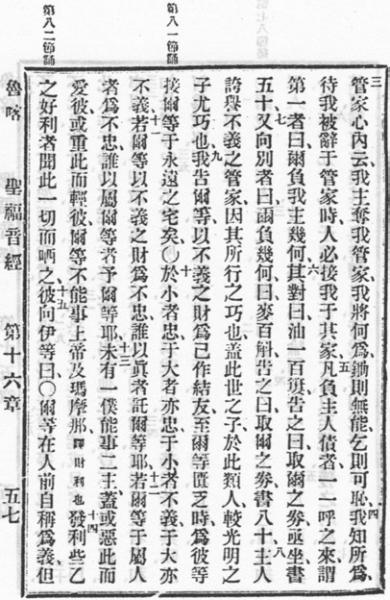 第八一節誦
第八二節誦
三管家心內云、我主奪我管家、我將何爲、鋤則無能、乞則可恥、四我知所爲、
待我被辭于管家時、人必接我于其家、五凡負主人債者、一一呼之來、謂
第一者曰、爾負我主幾何、六其對曰、油一百瓶、告之曰、取爾之券、亟坐書
五十、七又向別者曰、爾負幾何、曰、麥百斛、告之曰、取爾之券書八十、八主人
誇譽不義之管家、因其所行之巧也、蓋此世之子、於此類人、較光明之
子尤巧也、九我告爾等、以不義之財、爲己作結友、至爾等匱乏時、爲彼等
接爾等于永遠之宅矣、〇十於小者忠、于大者亦忠、于小者不義、于大亦
不義、十一若爾等以不義之財爲不忠、誰以眞者託爾等耶、十二若爾等于屬人
者爲不忠、誰以屬爾等者予爾等耶、十三未有一僕能事二主、蓋或惡此而
愛彼、或重此而輕彼、爾等不能事上帝及瑪摩那、譯財利也十四發利些乙
之好利者、聞此一切而哂之、十五彼向伊等曰、〇爾等在人前自稱爲義、但
魯喀 聖福音經 第十六章 五七